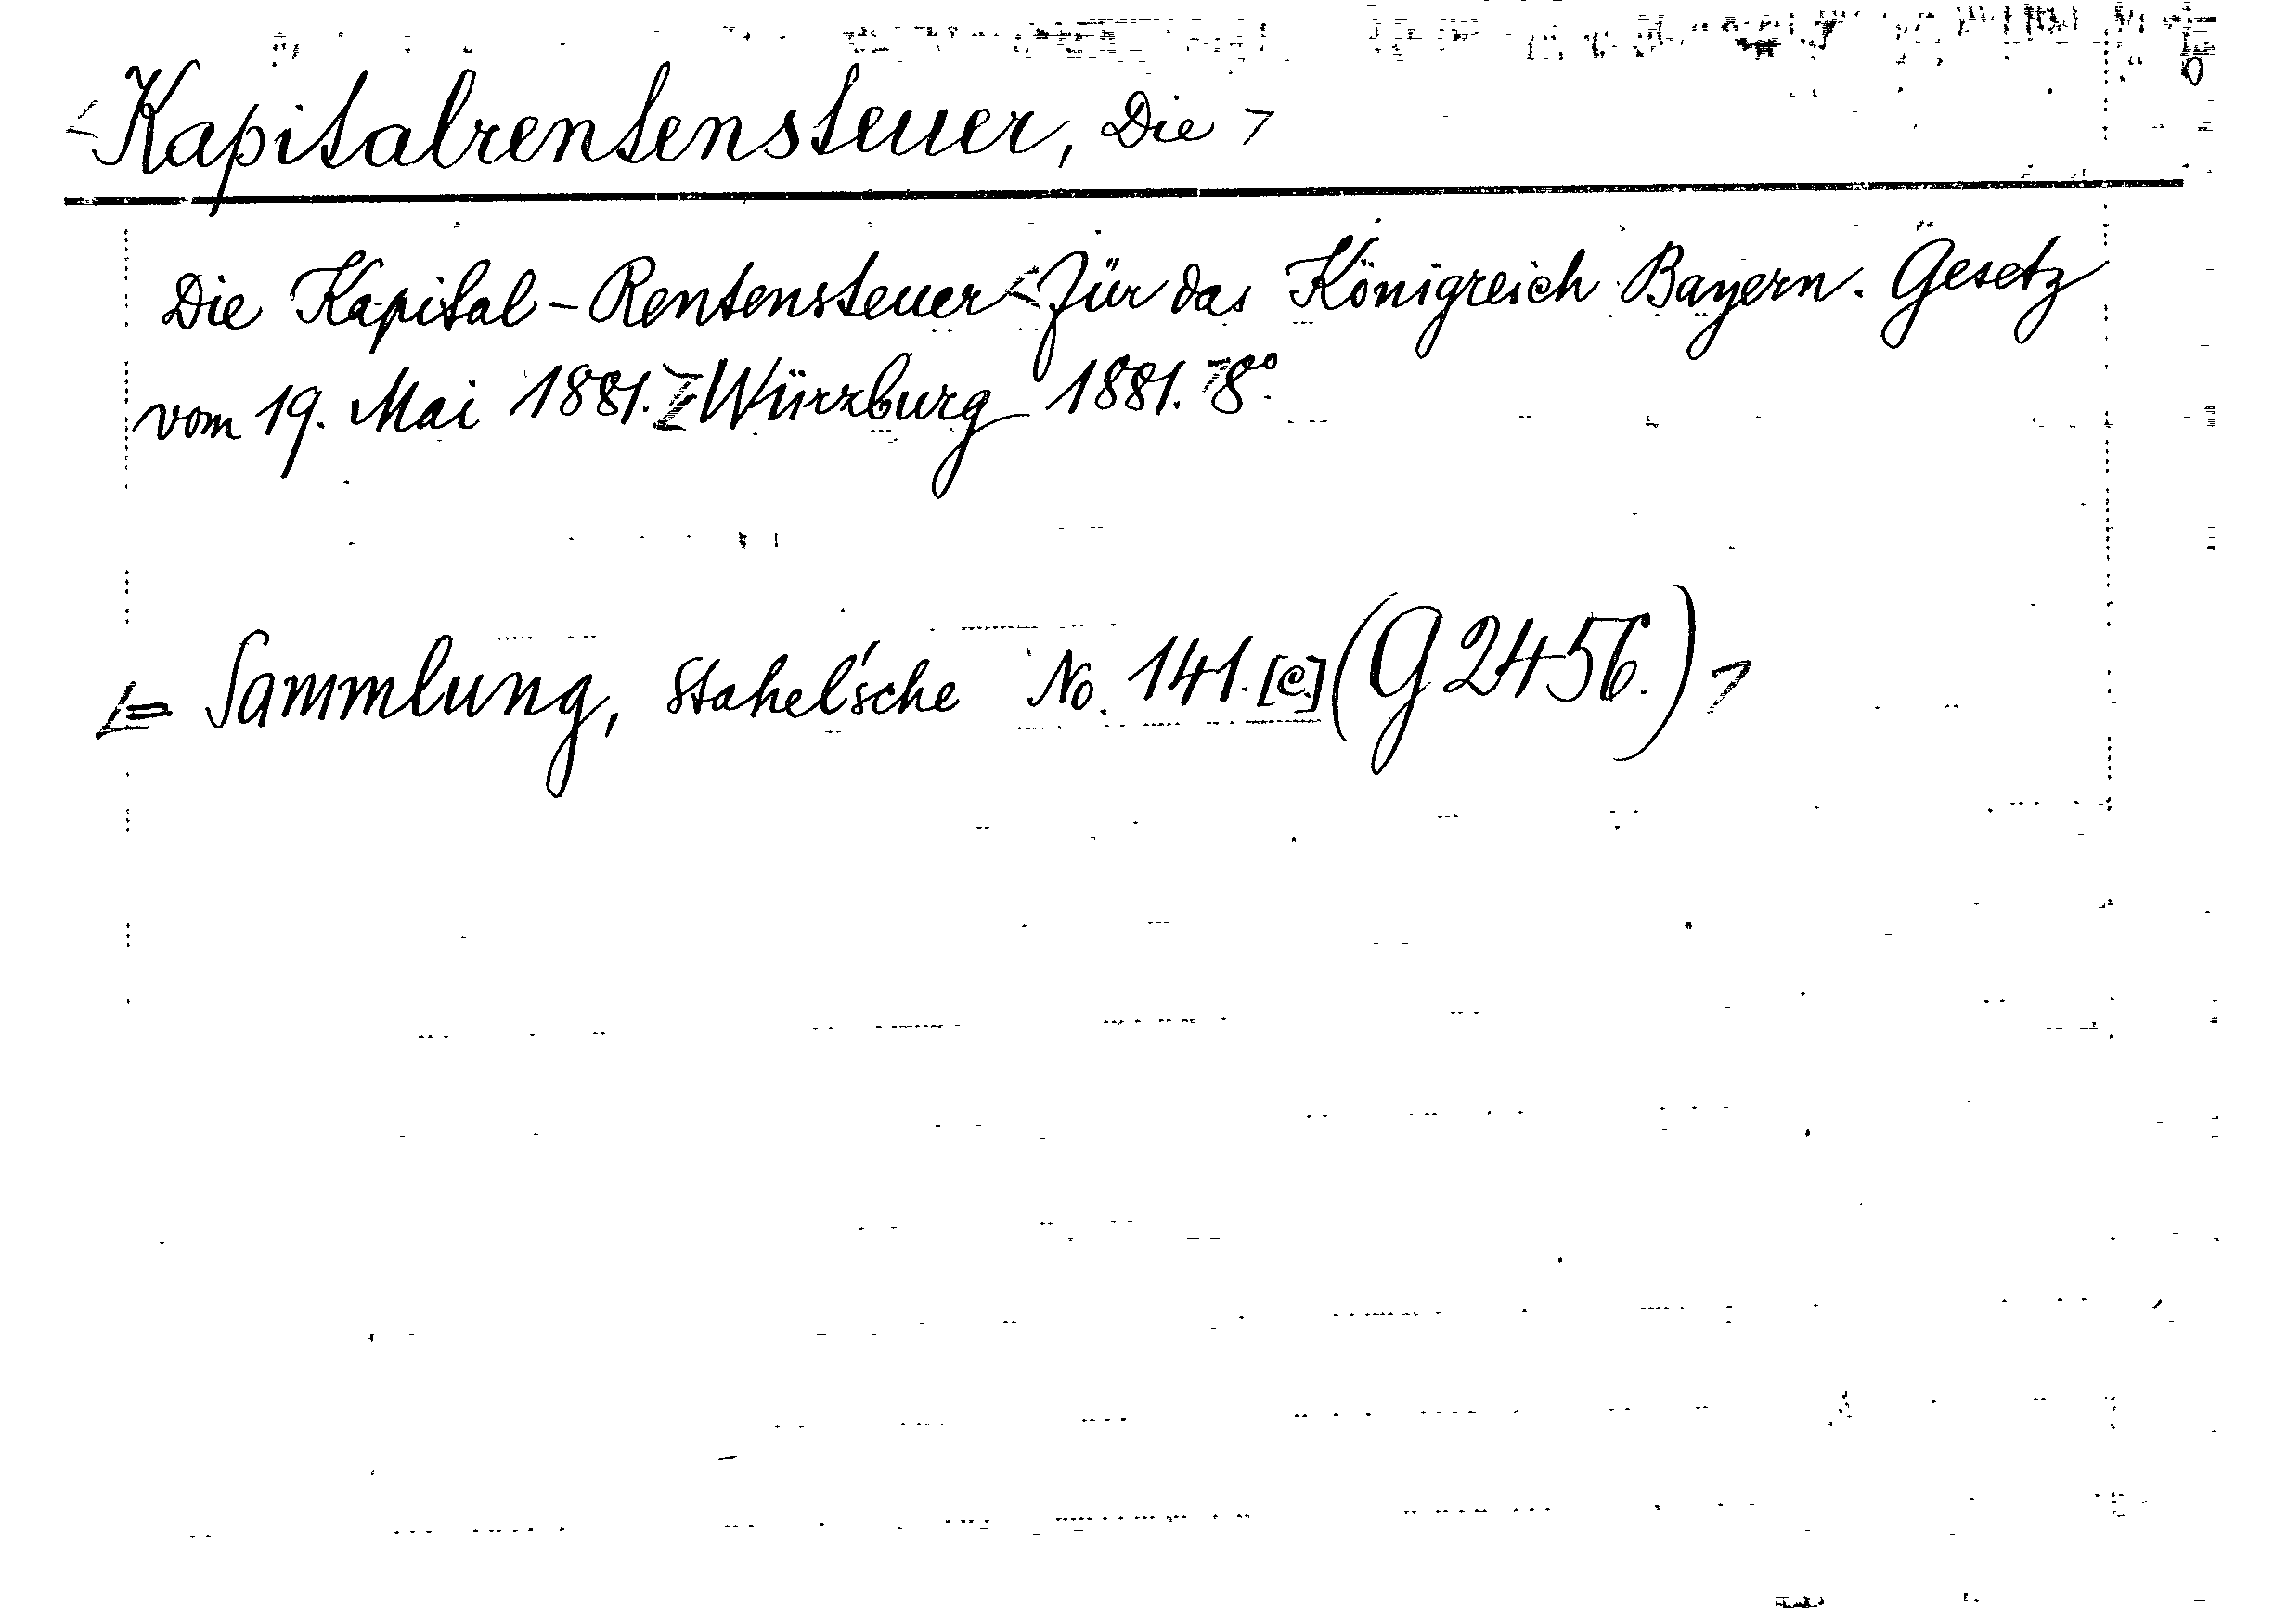 <Kapitalrentensteuer, Die>
Die Kapital-Rentensteuer <für das Königreich Bayern. Gesetz
vom 19. Mai 1881. Würzburg 1881.> 8°.
<= Sammlung, Stahel'sche No. 141. [e.] (G 2456.)>